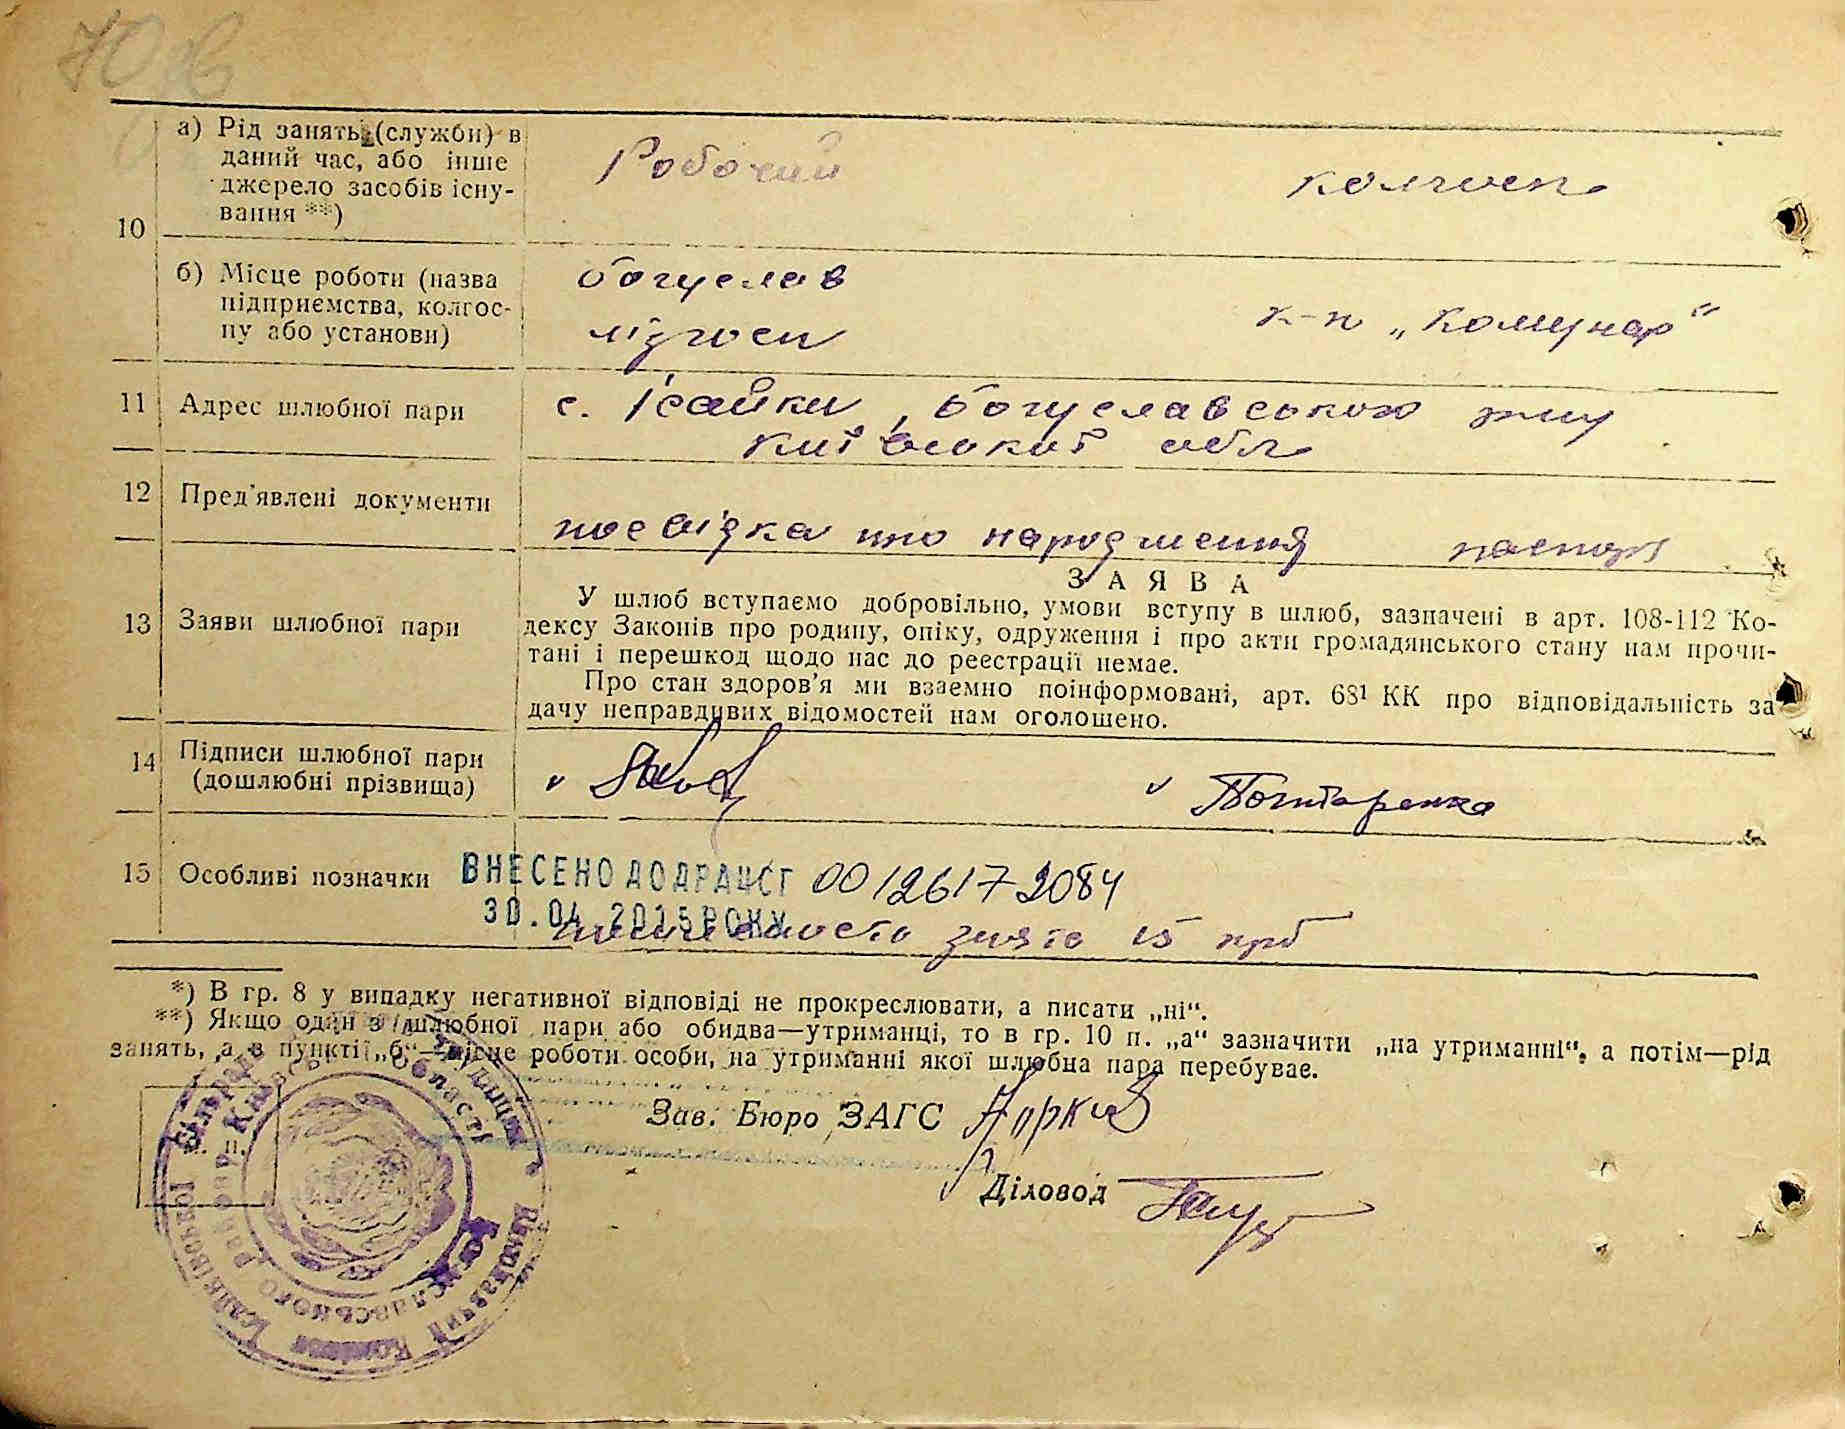 а) Рід занять (служби) в
даний час, або інше
джерело засобів існу-
вання **)
Робочий
колгосп
10
б) Місце роботи (назва
підприємства, колгос-
пу або установи)
Богуслав
лісгосп
к-п „Комунар"
11 Адрес шлюбної пари
с. Ісайки, Богуславського
Київської обл
12 Пред'явлені документи
посвідка про народження паспорт
ЗАЯВА
13 Заяви шлюбної пари
У шлюб вступаємо добровільно, умови вступу в шлюб, зазначені в арт. 108-112 Ко-
дексу Законів про родину, опіку, одруження і про акти громадянського стану нам прочи-
тані і перешкод щодо нас до реєстрації немає.
Про стан здоров'я ми взаємно поінформовані, арт. 68¹ КК про відповідальність за
дачу неправдивих відомостей нам оголошено.
14 Підписи шлюбної пари
(дошлюбні прізвища)
15 Особливі позначки
ВНЕСЕНО ДО ДРАЦСГ 00126172084
30.04.2015 РОКУ
15 крб
*) В гр. 8 у випадку негативної відповіді не прокреслювати, а писати „ні“.
**) Якщо один з шлюбної пари або обидва—утриманці, то в гр. 10 п. „а“ зазначити „на утриманні“, а потім—рід
занять, а в пункті „б“—місце роботи особи, на утриманні якої шлюбна пара перебуває.
М. П.
Зав. Бюро ЗАГС
Діловод